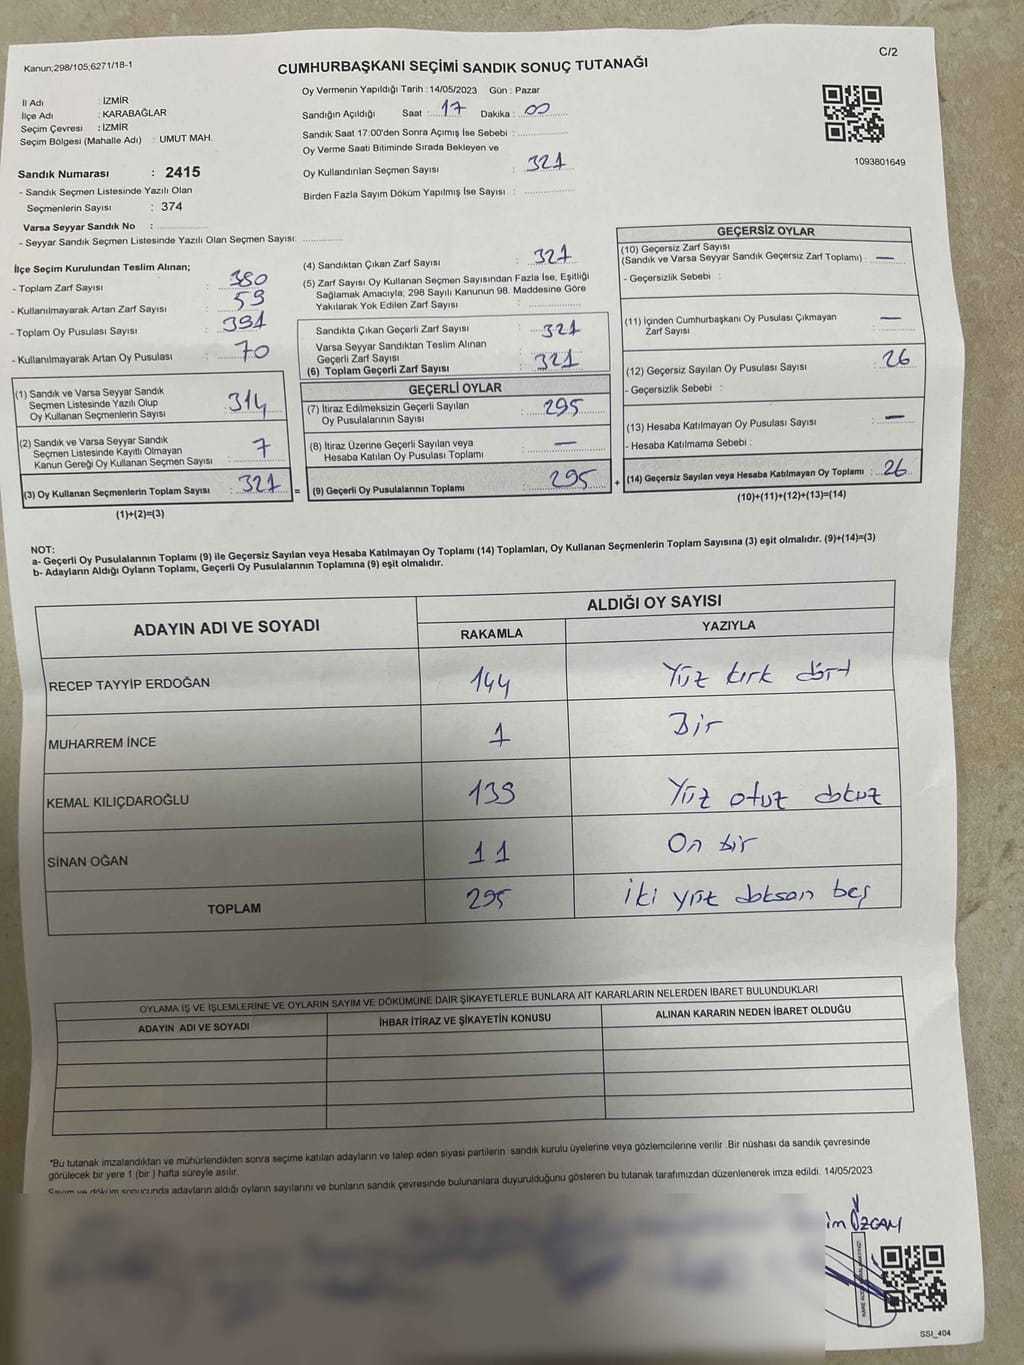 Kanun;298/105,6271/18-1
C/2
CUMHURBAŞKANI SEÇİMİ SANDIK SONUÇ TUTANAĞI
İl Adı : İZMİR
İlçe Adı : KARABAĞLAR
Seçim Çevresi : İZMİR
Seçim Bölgesi (Mahalle Adı) : UMUT MAH.
Sandık Numarası : 2415
- Sandık Seçmen Listesinde Yazılı Olan
Seçmenlerin Sayısı : 374
Varsa Seyyar Sandık No :
- Seyyar Sandık Seçmen Listesinde Yazılı Olan Seçmen Sayısı:
Oy Vermenin Yapıldığı Tarih : 14/05/2023 Gün : Pazar
Sandığın Açıldığı Saat : 17 Dakika : 00
Sandık Saat 17:00'den Sonra Açımış İse Sebebi :
Oy Verme Saati Bitiminde Sırada Bekleyen ve
Oy Kullandırılan Seçmen Sayısı : 321
Birden Fazla Sayım Döküm Yapılmış İse Sayısı :
1093801649
İlçe Seçim Kurulundan Teslim Alınan;
- Toplam Zarf Sayısı : 380
- Kullanılmayarak Artan Zarf Sayısı : 59
- Toplam Oy Pusulası Sayısı : 391
- Kullanılmayarak Artan Oy Pusulası : 70
(1) Sandık ve Varsa Seyyar Sandık
Seçmen Listesinde Yazılı Olup
Oy Kullanan Seçmenlerin Sayısı : 314
(2) Sandık ve Varsa Seyyar Sandık
Seçmen Listesinde Kayıtlı Olmayan
Kanun Gereği Oy Kullanan Seçmen Sayısı : 7
(3) Oy Kullanan Seçmenlerin Toplam Sayısı : 321 =
(1)+(2)=(3)
(4) Sandıktan Çıkan Zarf Sayısı : 321
(5) Zarf Sayısı Oy Kullanan Seçmen Sayısından Fazla İse, Eşitliği
Sağlamak Amacıyla; 298 Sayılı Kanunun 98. Maddesine Göre
Yakılarak Yok Edilen Zarf Sayısı :
Sandıkta Çıkan Geçerli Zarf Sayısı : 321
Varsa Seyyar Sandıktan Teslim Alınan
Geçerli Zarf Sayısı
(6) Toplam Geçerli Zarf Sayısı : 321
GEÇERLİ OYLAR
(7) İtiraz Edilmeksizin Geçerli Sayılan
Oy Pusulalarının Sayısı : 295
(8) İtiraz Üzerine Geçerli Sayılan veya
Hesaba Katılan Oy Pusulası Toplamı : —
(9) Geçerli Oy Pusulalarının Toplamı : 295 +
GEÇERSİZ OYLAR
(10) Geçersiz Zarf Sayısı
(Sandık ve Varsa Seyyar Sandık Geçersiz Zarf Toplamı) : —
- Geçersizlik Sebebi :
(11) İçinden Cumhurbaşkanı Oy Pusulası Çıkmayan
Zarf Sayısı : —
(12) Geçersiz Sayılan Oy Pusulası Sayısı : 26
- Geçersizlik Sebebi :
(13) Hesaba Katılmayan Oy Pusulası Sayısı : —
- Hesaba Katılmama Sebebi :
(14) Geçersiz Sayılan veya Hesaba Katılmayan Oy Toplamı : 26
(10)+(11)+(12)+(13)=(14)
NOT:
a- Geçerli Oy Pusulalarının Toplamı (9) ile Geçersiz Sayılan veya Hesaba Katılmayan Oy Toplamı (14) Toplamları, Oy Kullanan Seçmenlerin Toplam Sayısına (3) eşit olmalıdır. (9)+(14)=(3)
b- Adayların Aldığı Oyların Toplamı, Geçerli Oy Pusulalarının Toplamına (9) eşit olmalıdır.
ADAYIN ADI VE SOYADI
ALDIĞI OY SAYISI
RAKAMLA YAZIYLA
RECEP TAYYİP ERDOĞAN 144 Yüz kırk dört
MUHARREM İNCE 1 Bir
KEMAL KILIÇDAROĞLU 139 Yüz otuz dokuz
SİNAN OĞAN 11 On bir
TOPLAM 295 iki yüz doksan beş
OYLAMA İŞ VE İŞLEMLERİNE VE OYLARIN SAYIM VE DÖKÜMÜNE DAİR ŞİKAYETLERLE BUNLARA AİT KARARLARIN NELERDEN İBARET BULUNDUKLARI
ADAYIN ADI VE SOYADI İHBAR İTİRAZ VE ŞİKAYETİN KONUSU ALINAN KARARIN NEDEN İBARET OLDUĞU
*Bu tutanak imzalandıktan ve mühürlendikten sonra seçime katılan adayların ve talep eden siyasi partilerin sandık kurulu üyelerine veya gözlemcilerine verilir .Bir nüshası da sandık çevresinde
görülecek bir yere 1 (bir ) hafta süreyle asılır.
Sayım ve döküm sonucunda adayların aldığı oyların sayılarını ve bunların sandık çevresinde bulunanlara duyurulduğunu gösteren bu tutanak tarafımızdan düzenlenerek imza edildi. 14/05/2023
im ÖZCAN
SSI_404